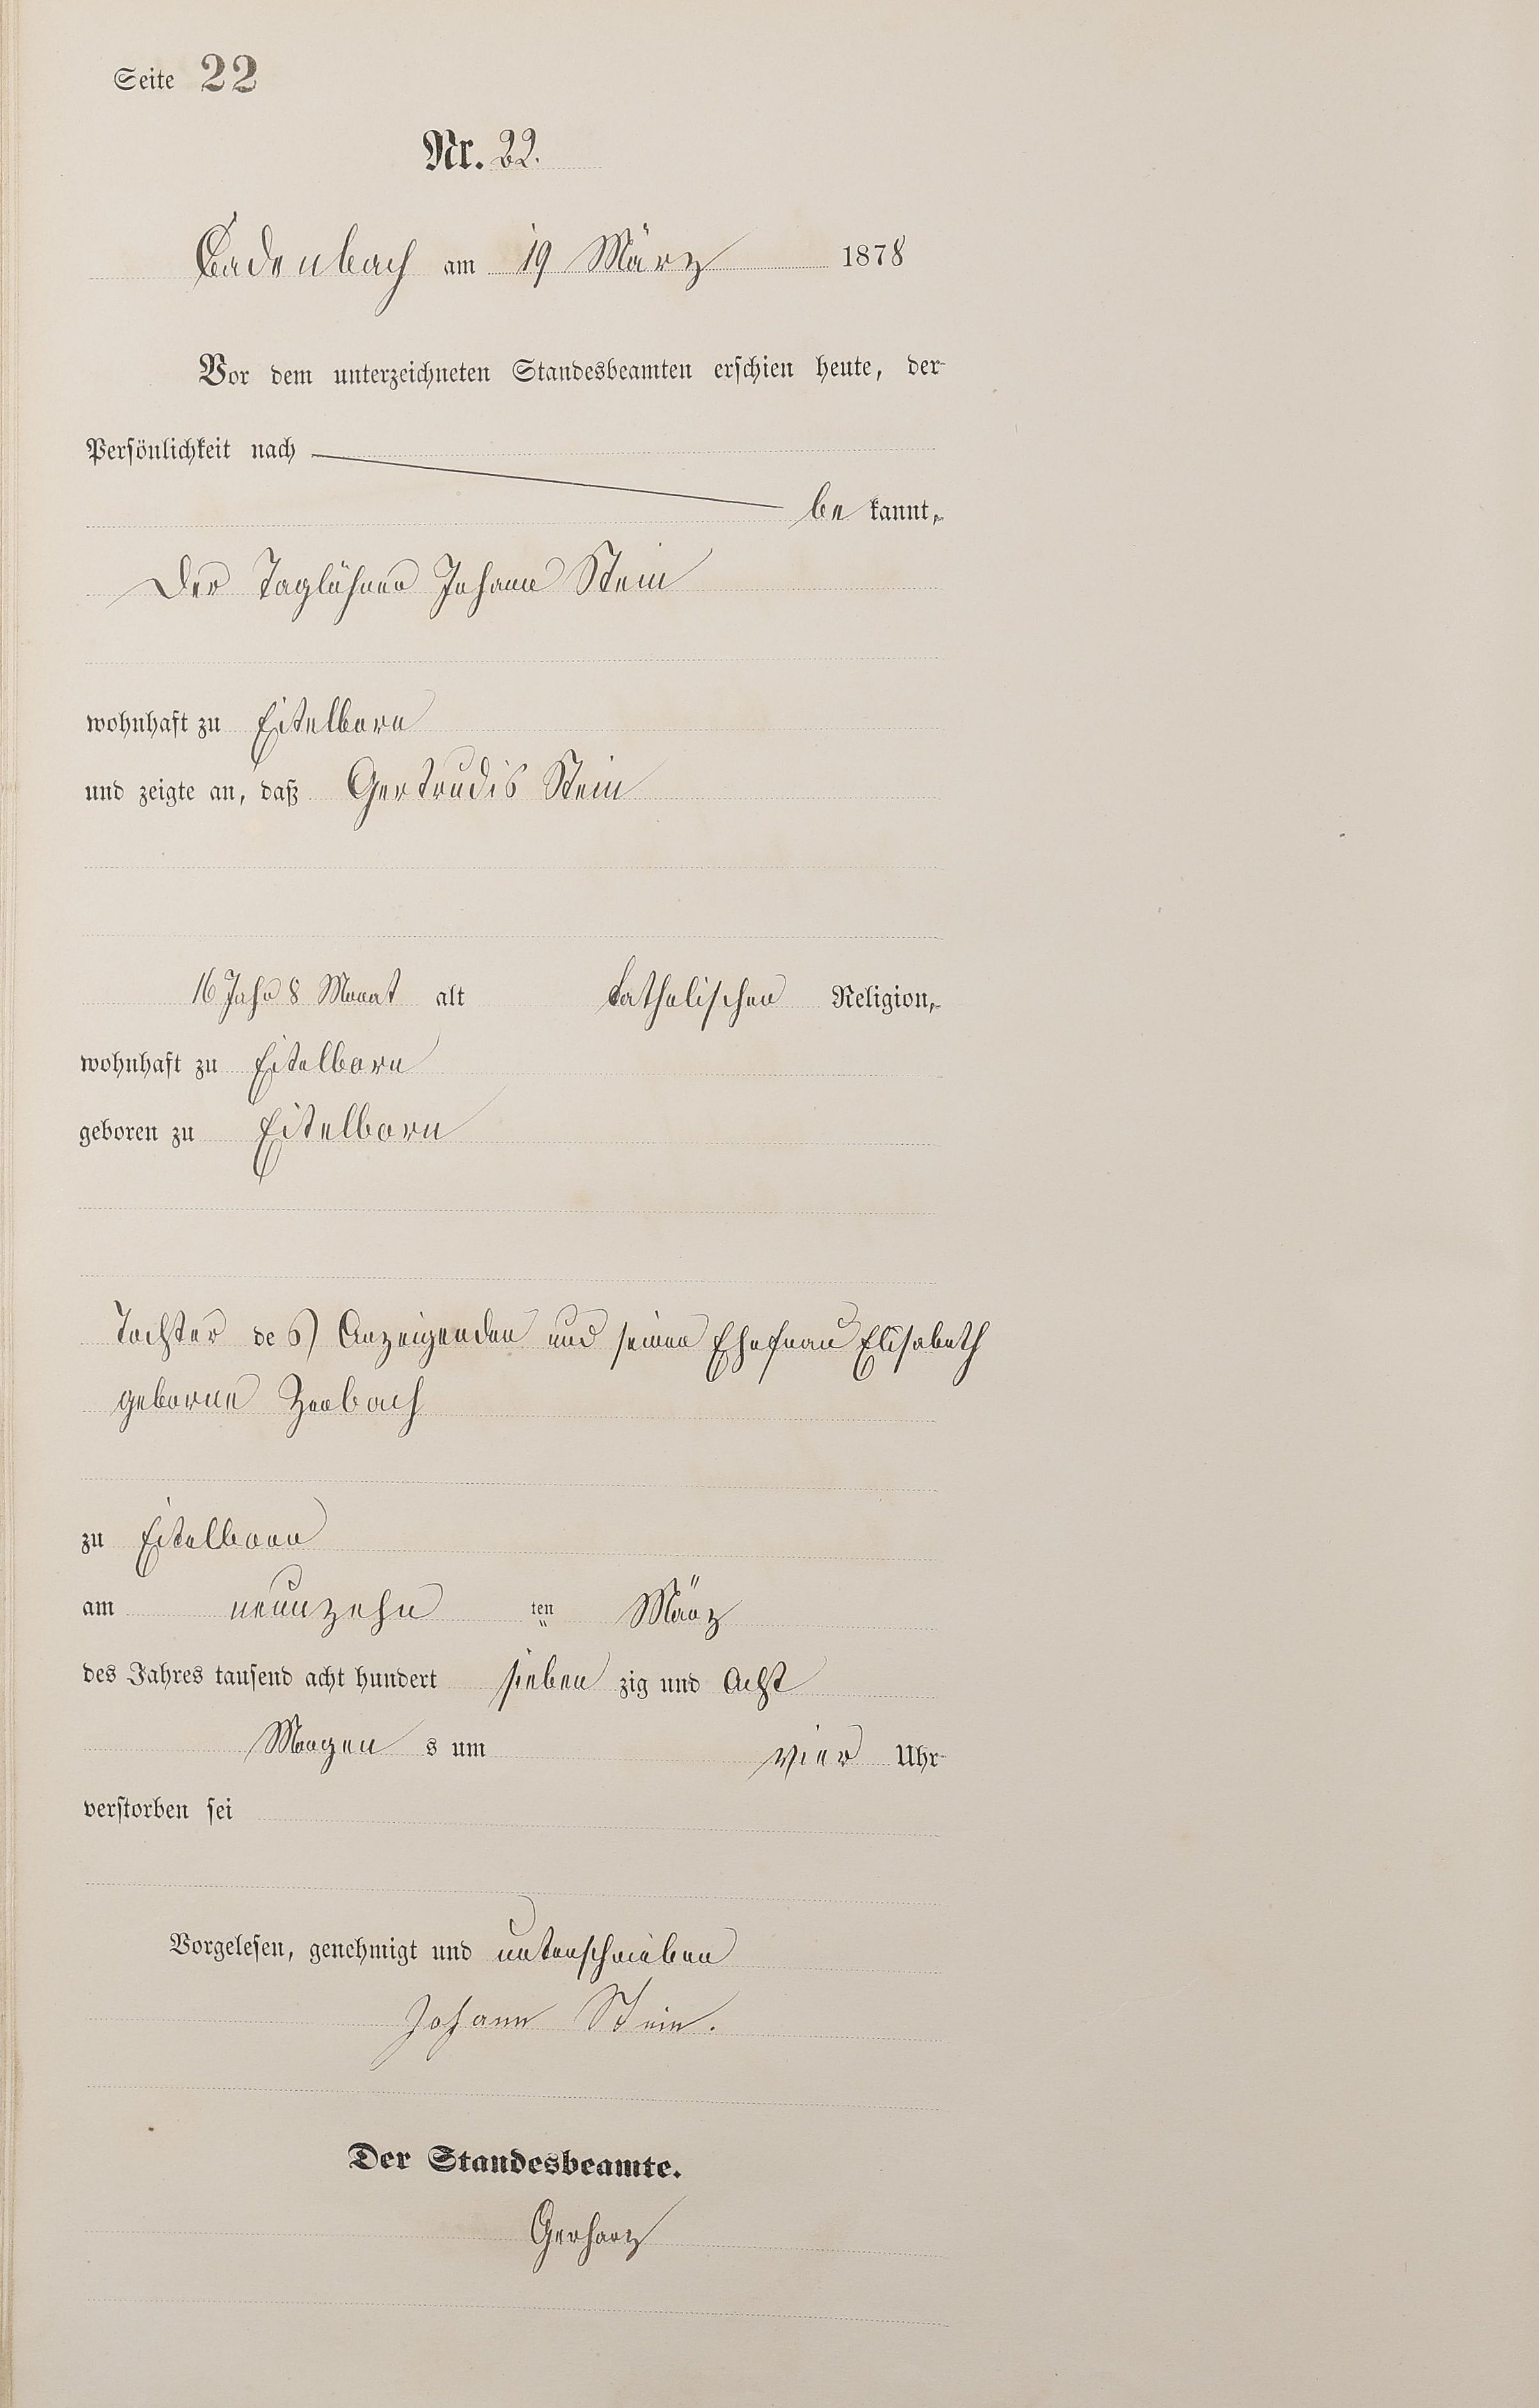 Seite 22
Nr. 22.
Cadenbach am 19 März 1878
Vor dem unterzeichneten Standesbeamten erschien heute, der
Persönlichkeit nach
be kannt,
Der Taglöhner Johann Stein
wohnhaft zu Eitelborn
und zeigte an, daß Gertrudis Stein
16 Jahr 8 Monat alt katholischer Religion,
wohnhaft zu Eitelborn
geboren zu Eitelborn
Tochter des Anzeigenden und seiner Ehefrau Elisabeth
geborne
zu Eitelborn
am neunzehn ten März
des Jahres tausend acht hundert sieben zig und Acht
Morgen s um vier Uhr
verstorben sei
Vorgelesen, genehmigt und unterschrieben
Johann Stein.
Der Standesbeamte.
Gerharz